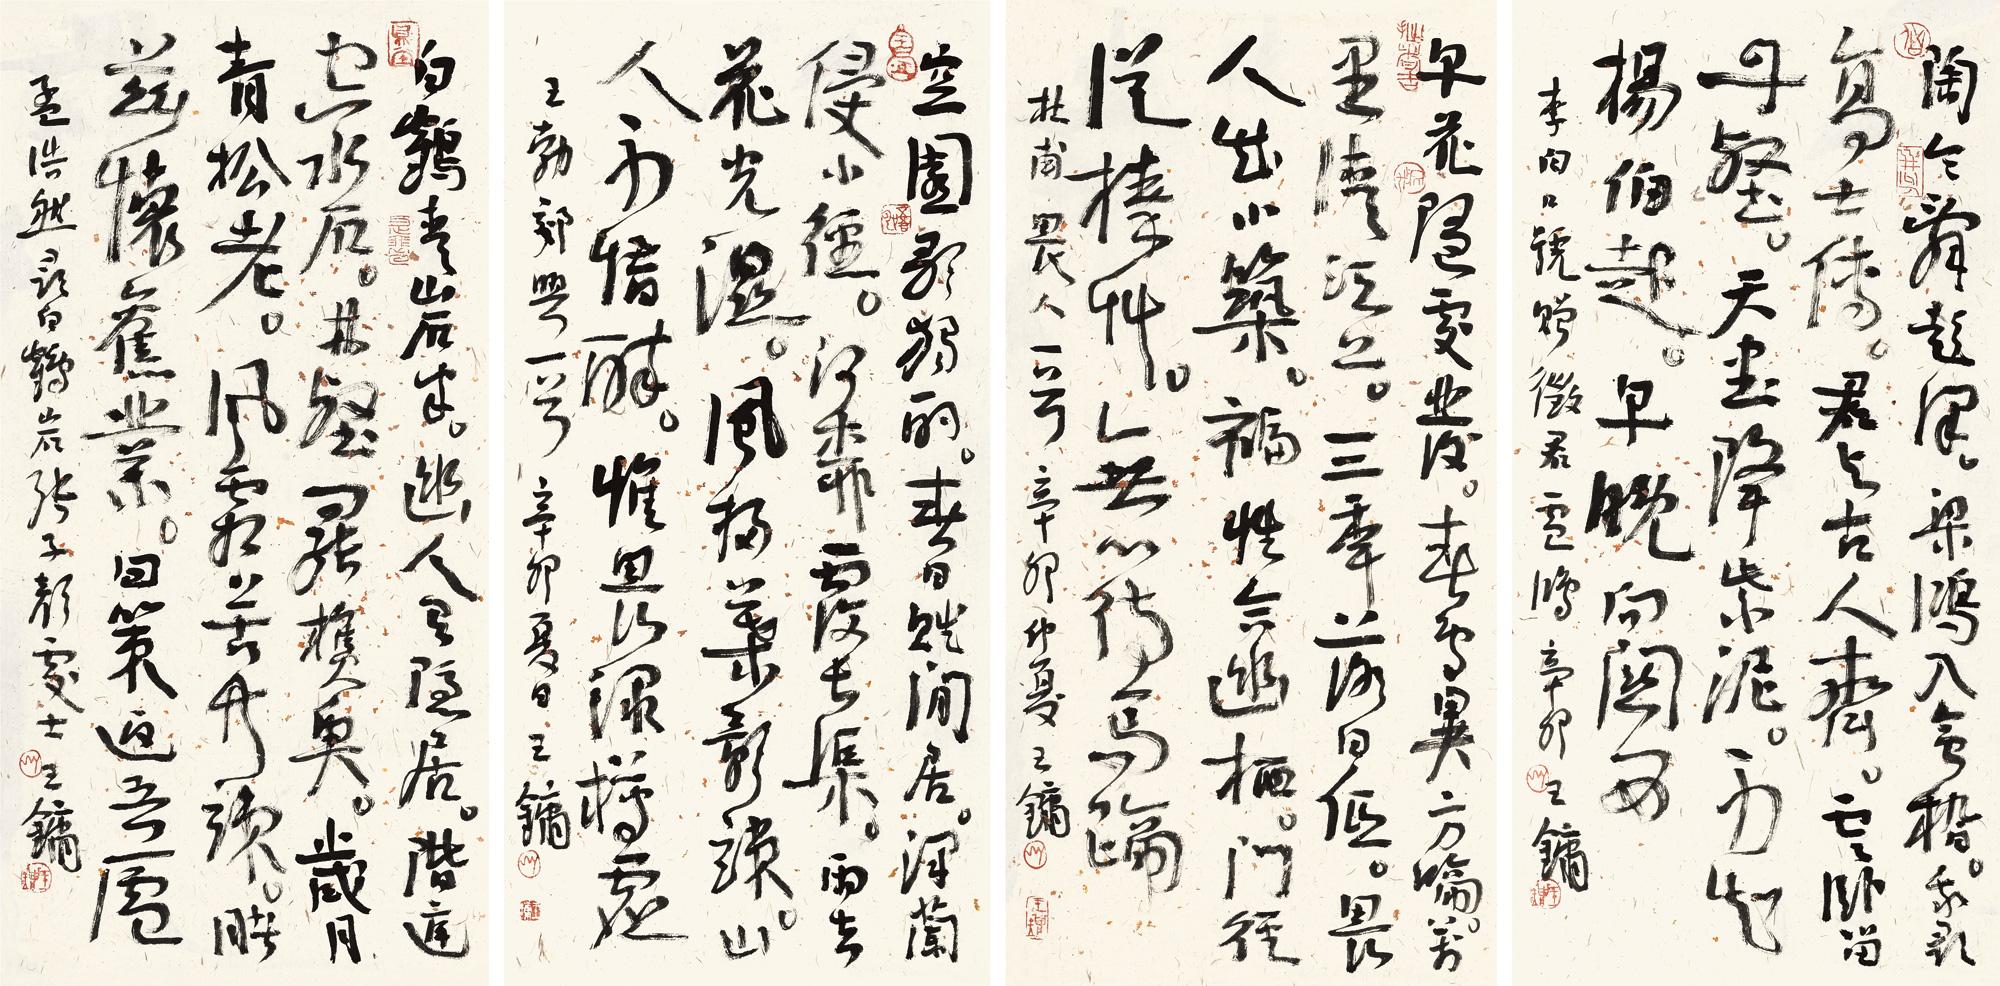 陶令辭彭澤。梁鴻入會稽。我尋
高士傳。君與古人齊。雲臥留
丹壑。天書降紫泥。不知
楊伯起。早晚向關西
李白口號贈徵君盧鴻 辛卯王鏞
早花隨處發。春鳥異方啼。萬
里清江上。三年落日低。畏
人成小築。褊性合幽栖。門徑
從榛艸。無心待馬蹄
杜甫畏人一首 辛卯仲夏王鏞
空園歌獨酌。春日賦閒居。澤蘭
侵小徑。河柳覆長渠。雨去
花光濕。風歸葉影疎。山
人不惜醉。惟畏綠樽虛
王勃郊興一首 辛卯夏日王鏞
白鶴青岩半。幽人有隱居。階庭
空水石。林壑罷樵魚。歲月
青松老。風霜苦竹疎。睹
茲懷舊業。回策返吾廬
孟浩然尋白鶴岩張子顏處士 王鏞